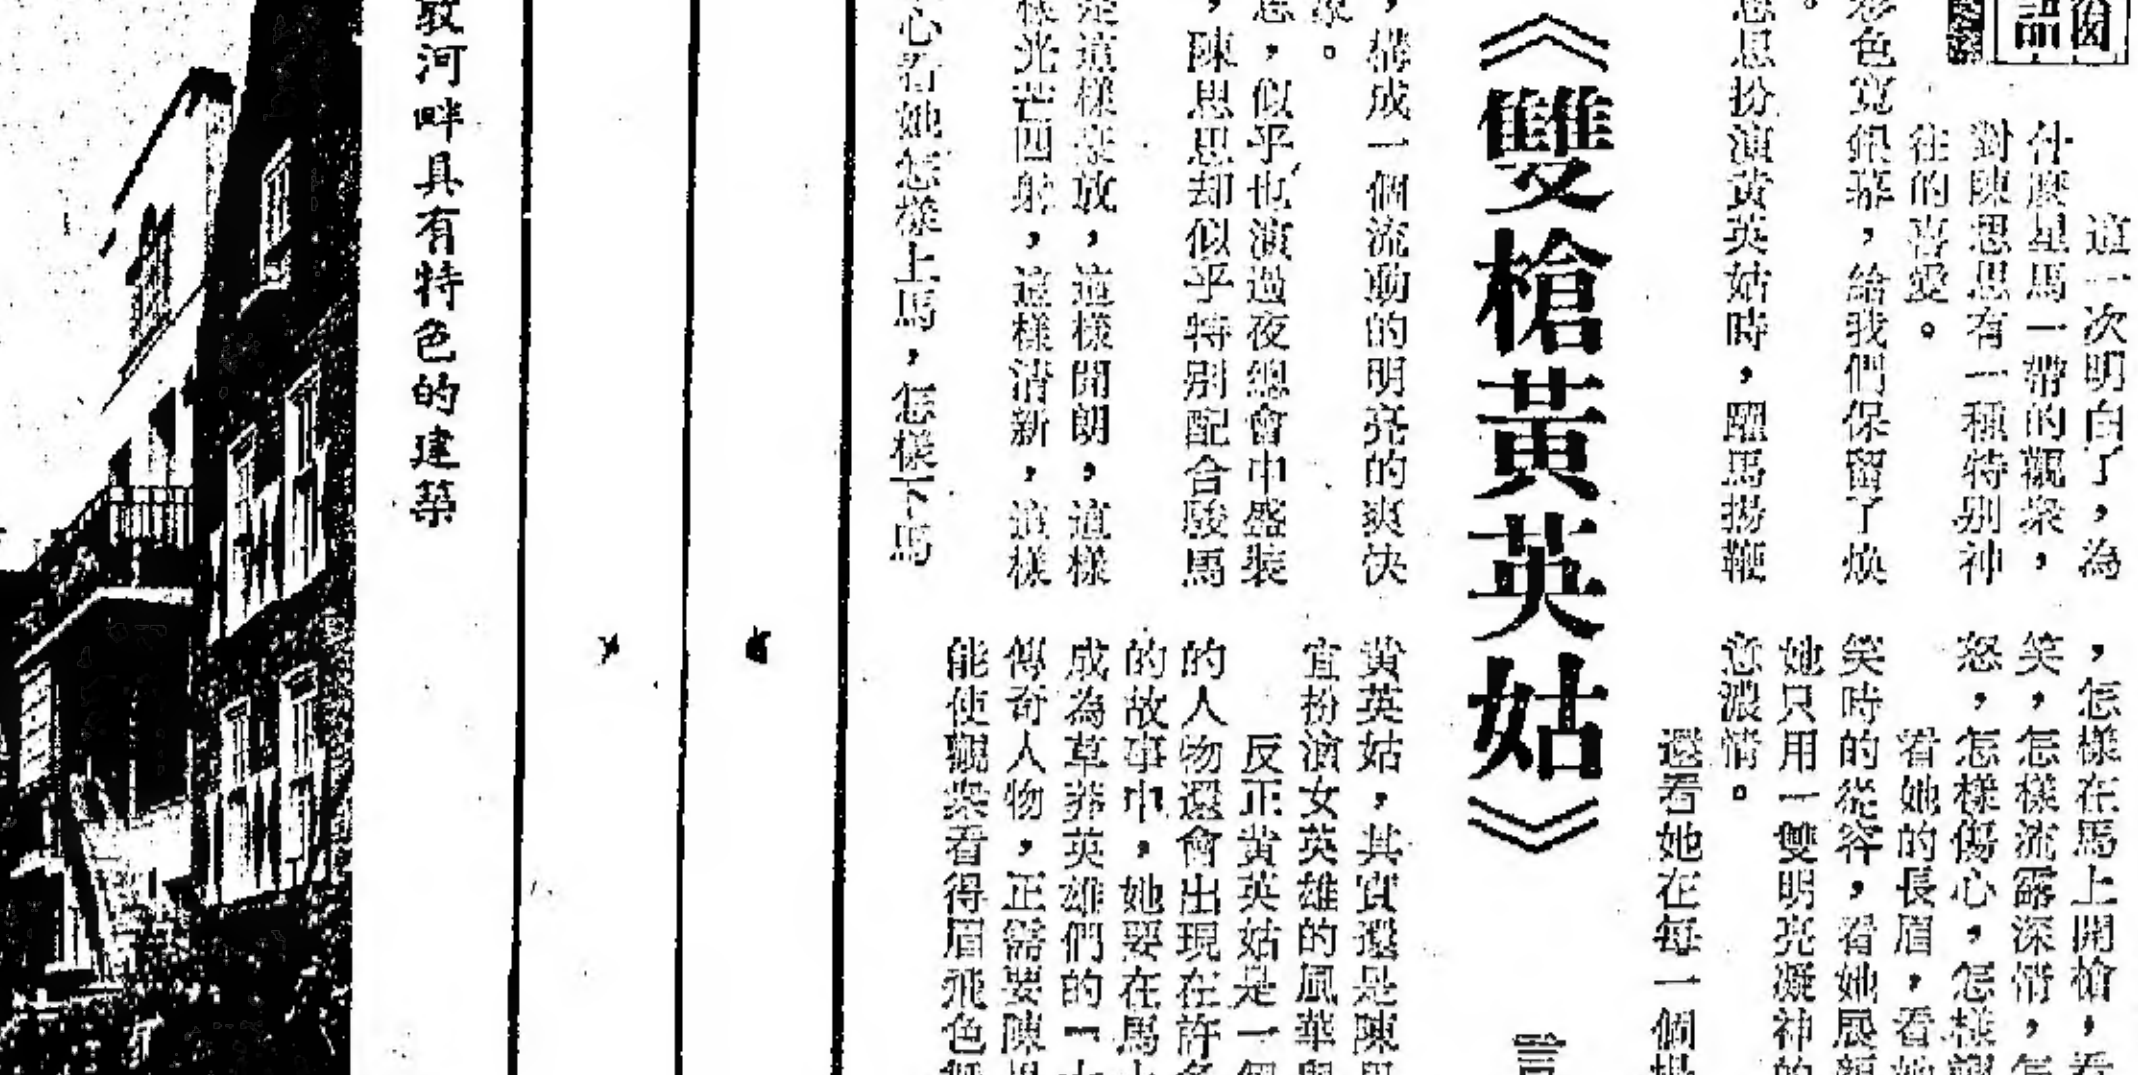 這一次明白了，為
什麼星馬一帶的觀衆，
對陳思思有一種特别神
往的喜愛。
彩色寬銀幕，給我們保留了煥
思思扮演黄英姑時，躍馬揚鞭
《雙槍黃英姑》
，構成一個流動的明亮的爽快
似乎也演過夜總會中盛裝
，陳思思却似乎特别配合駿馬
是這樣豪放，這樣開朗，這樣
樣光芒四射，這樣清新，這樣
心看她怎樣上馬，怎樣下馬
，怎樣在馬上開槍，看
笑，怎樣流露深情，怎
怒，怎樣傷心，怎樣
看她的長眉，看她
笑時的從容，看她展顏
她只用一雙明亮凝神的
意濃情。
還看她在每一個
黄英姑，其實還是陳
宜扮演女英雄的風華與
反正黄英姑是一個
的人物還會出現在許多
的故事中，她要在馬上
成為草莽英雄們的
傳奇人物，正需要陳思
能使觀衆看得眉飛色
河畔具有特色的建築